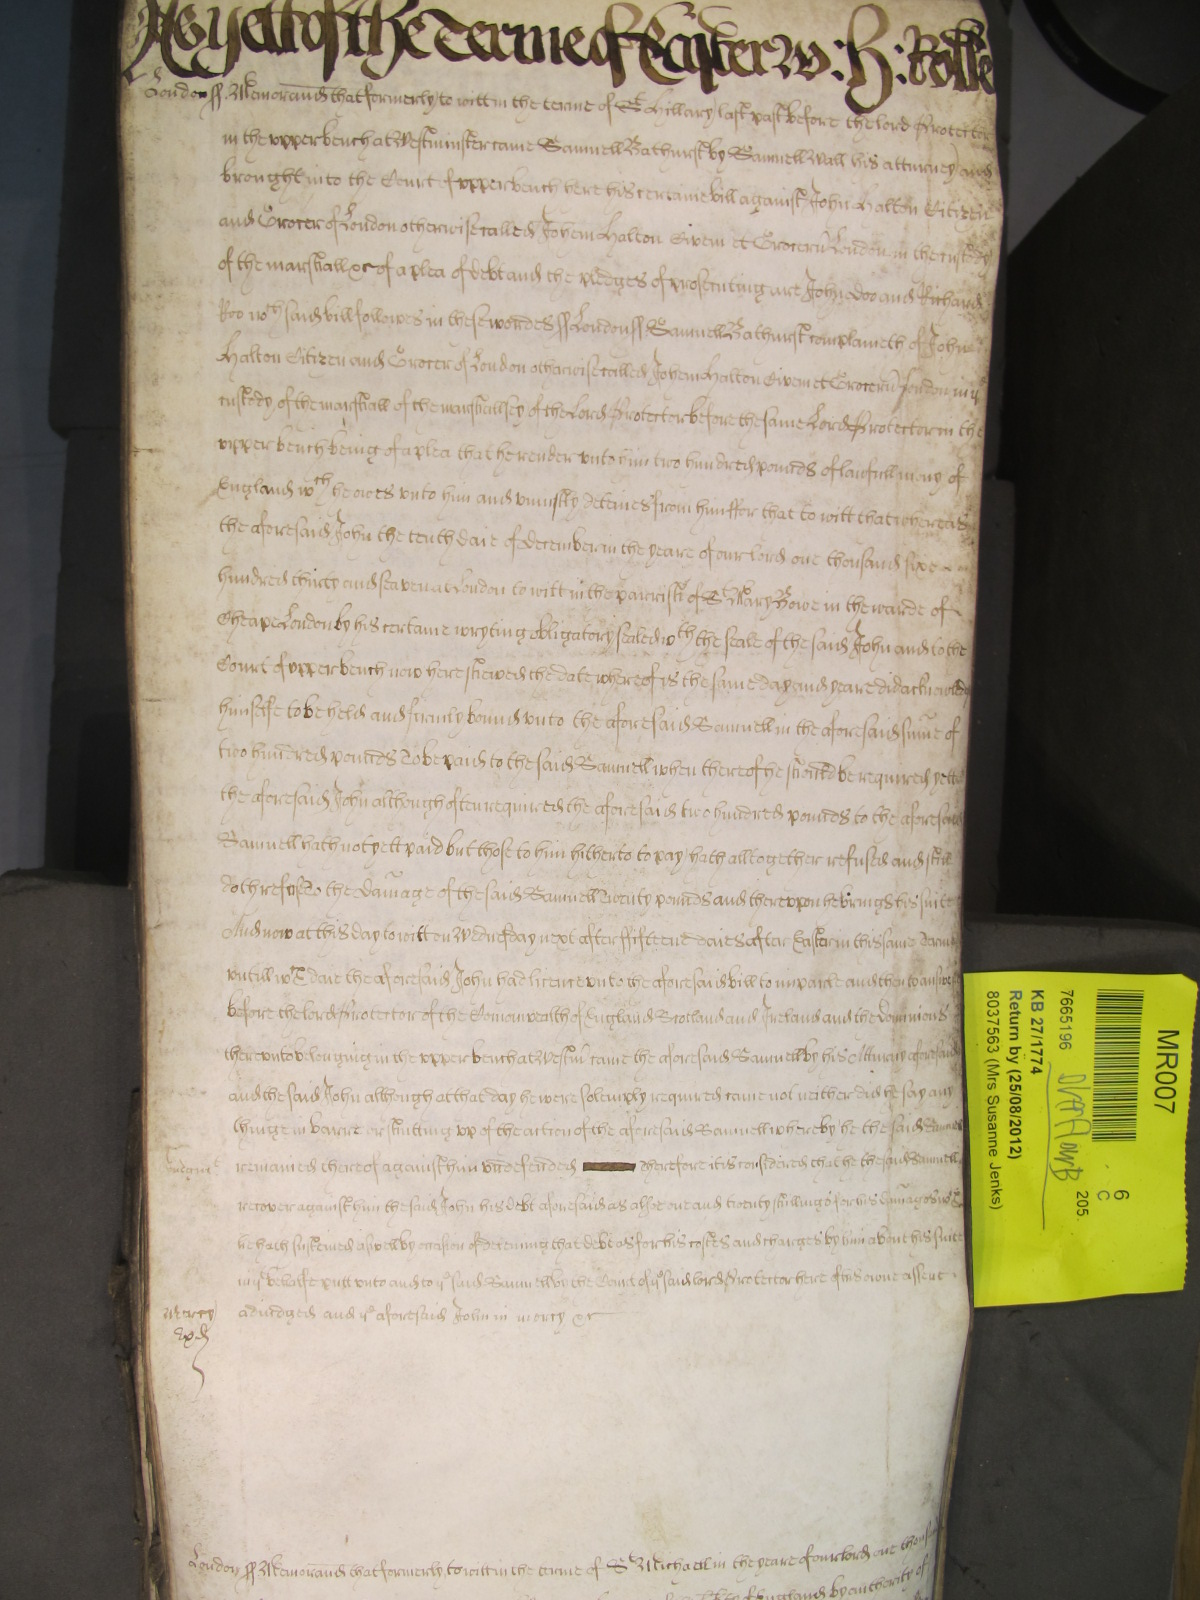 As yett of the Terme of Easter W: H: Rolle
London ss Memorand that formerly to witt in the terme of St Hillary last past before the lord Protector
in the upper bench at Westminster came Samuell Bathurst by Samuell Wall his atturney and
brought into the Court of upper bench here his certaine bill against John Halton Citizen
and Grocer of London otherwise called Johem Halton Civem et Grocerū London in the custody
of the marshall &c of a plea of debt and the pledges of prosecuting are John Doo and Richard
Roo wch said bill followes in these wordes ss London ss Samuell Bathurst complaineth of John
Halton Citizen and Grocer of London otherwise called Johem Halton Civem et Grocerū London in ye
custody of the marshall of the marshallsey of the Lord Protector before the same Lord Protector in the
upper bench being of a plea that he render unto him two hundred pounds of lawfull mony of
England wch he owes unto him and uniustly deteines from him ffor that to witt that whereas
the aforesaid John the tenth daie of December in the yeare of our Lord one thousand sixe
hundred thirty and seaven at London to witt in the parrish of St Mary Bowe in the warde of
Cheape London by his certaine wryting obligatory sealed wth the seale of the said John and to the
Court of upper bench now here shewed the date whereof is the same day and yeare did acknowledg
himselfe to be held and firmly bound unto the aforesaid Samuell in the aforesaid sume of
two hundred pounds to be paid to the said Samuell when thereof he should be required yett
the aforesaid John although often required the aforesaid two hundred pounds to the aforesaid
Samuell hath not yett paid but those to him hitherto to pay hath alltogether refused and still
doth refuse To the damage of the said Samuell twenty pounds and thereupon he brings his suite
And now at this day to witt on Wednesday next after fifteene daies after Easter in this same Terme
untill wch daie the aforesaid John had licence unto the aforesaid bill to imparle and then to answer
before the lord Protector of the Comonwealth of England Scotland and Ireland and the dominions
thereunto belonging in the upper bench at Westm̄ came the aforesaid Samuell by his Atturny aforesaid
and the said John although at that day he were solemply required came not neither did he say any
thinge in barre or shutting up of the action of the aforesaid Samuell whereby he the said Samuell
remained thereof against him undefended Therefore it is considered that he the said Samuell
recover against him the said John his debt aforesaid as alsoe one and twenty shillings for his damages wch
he hath susteined aswell by occasion of deteining that debt as for his costes and charges by him about his suite
in yt behalfe putt unto and to ye said Samuell by the Court of ye said lord Protector here of his owne assent
Mercy
adiudged and ye aforesaid John in mercy &c
London ss Memorand that formerly to witt in the terme of St Michaell in the yeare of our lord one thous
of England by authority of
MR007
6
C
205.
7665196
KB 27/1774
Return by (25/08/2012)
8037563 (Mrs Susanne Jenks)